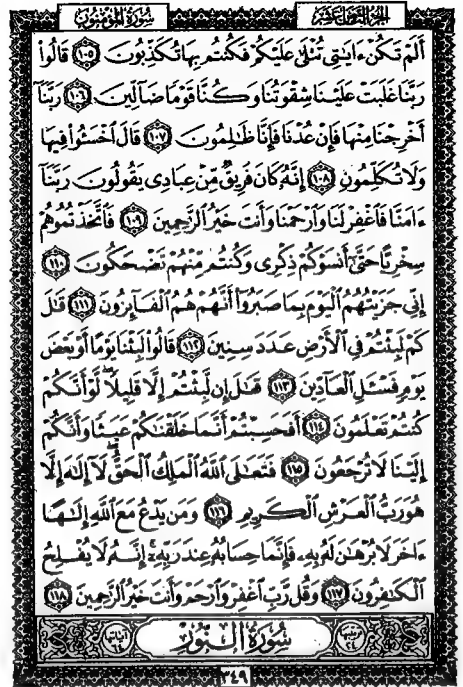 الجزء الثامن عشر
سورة المؤمنون
أَلَمْ تَكُنْ ءَايَٰتِى تُتْلَىٰ عَلَيْكُمْ فَكُنتُم بِهَا تُكَذِّبُونَ ١٠٥ قَالُوا۟
رَبَّنَا غَلَبَتْ عَلَيْنَا شِقْوَتُنَا وَكُنَّا قَوْمًا ضَآلِّينَ ١٠٦ رَبَّنَآ
أَخْرِجْنَا مِنْهَا فَإِنْ عُدْنَا فَإِنَّا ظَٰلِمُونَ ١٠٧ قَالَ ٱخْسَـُٔوا۟ فِيهَا
وَلَا تُكَلِّمُونِ ١٠٨ إِنَّهُۥ كَانَ فَرِيقٌ مِّنْ عِبَادِى يَقُولُونَ رَبَّنَآ
ءَامَنَّا فَٱغْفِرْ لَنَا وَٱرْحَمْنَا وَأَنتَ خَيْرُ ٱلرَّٰحِمِينَ ١٠٩ فَٱتَّخَذْتُمُوهُمْ
سِخْرِيًّا حَتَّىٰٓ أَنسَوْكُمْ ذِكْرِى وَكُنتُم مِّنْهُمْ تَضْحَكُونَ ١١٠
إِنِّى جَزَيْتُهُمُ ٱلْيَوْمَ بِمَا صَبَرُوٓا۟ أَنَّهُمْ هُمُ ٱلْفَآئِزُونَ ١١١ قَٰلَ
كَمْ لَبِثْتُمْ فِى ٱلْأَرْضِ عَدَدَ سِنِينَ ١١٢ قَالُوا۟ لَبِثْنَا يَوْمًا أَوْ بَعْضَ
يَوْمٍ فَسْـَٔلِ ٱلْعَآدِّينَ ١١٣ قَٰلَ إِن لَّبِثْتُمْ إِلَّا قَلِيلًا ۖ لَّوْ أَنَّكُمْ
كُنتُمْ تَعْلَمُونَ ١١٤ أَفَحَسِبْتُمْ أَنَّمَا خَلَقْنَٰكُمْ عَبَثًا وَأَنَّكُمْ
إِلَيْنَا لَا تُرْجَعُونَ ١١٥ فَتَعَٰلَى ٱللَّهُ ٱلْمَلِكُ ٱلْحَقُّ ۖ لَآ إِلَٰهَ إِلَّا
هُوَ رَبُّ ٱلْعَرْشِ ٱلْكَرِيمِ ١١٦ وَمَن يَدْعُ مَعَ ٱللَّهِ إِلَٰهًا
ءَاخَرَ لَا بُرْهَٰنَ لَهُۥ بِهِۦ فَإِنَّمَا حِسَابُهُۥ عِندَ رَبِّهِۦٓ ۚ إِنَّهُۥ لَا يُفْلِحُ
ٱلْكَٰفِرُونَ ١١٧ وَقُل رَّبِّ ٱغْفِرْ وَٱرْحَمْ وَأَنتَ خَيْرُ ٱلرَّٰحِمِينَ ١١٨
سُورَةُ النُّورِ
آياتها ٦٤
٣٤٩